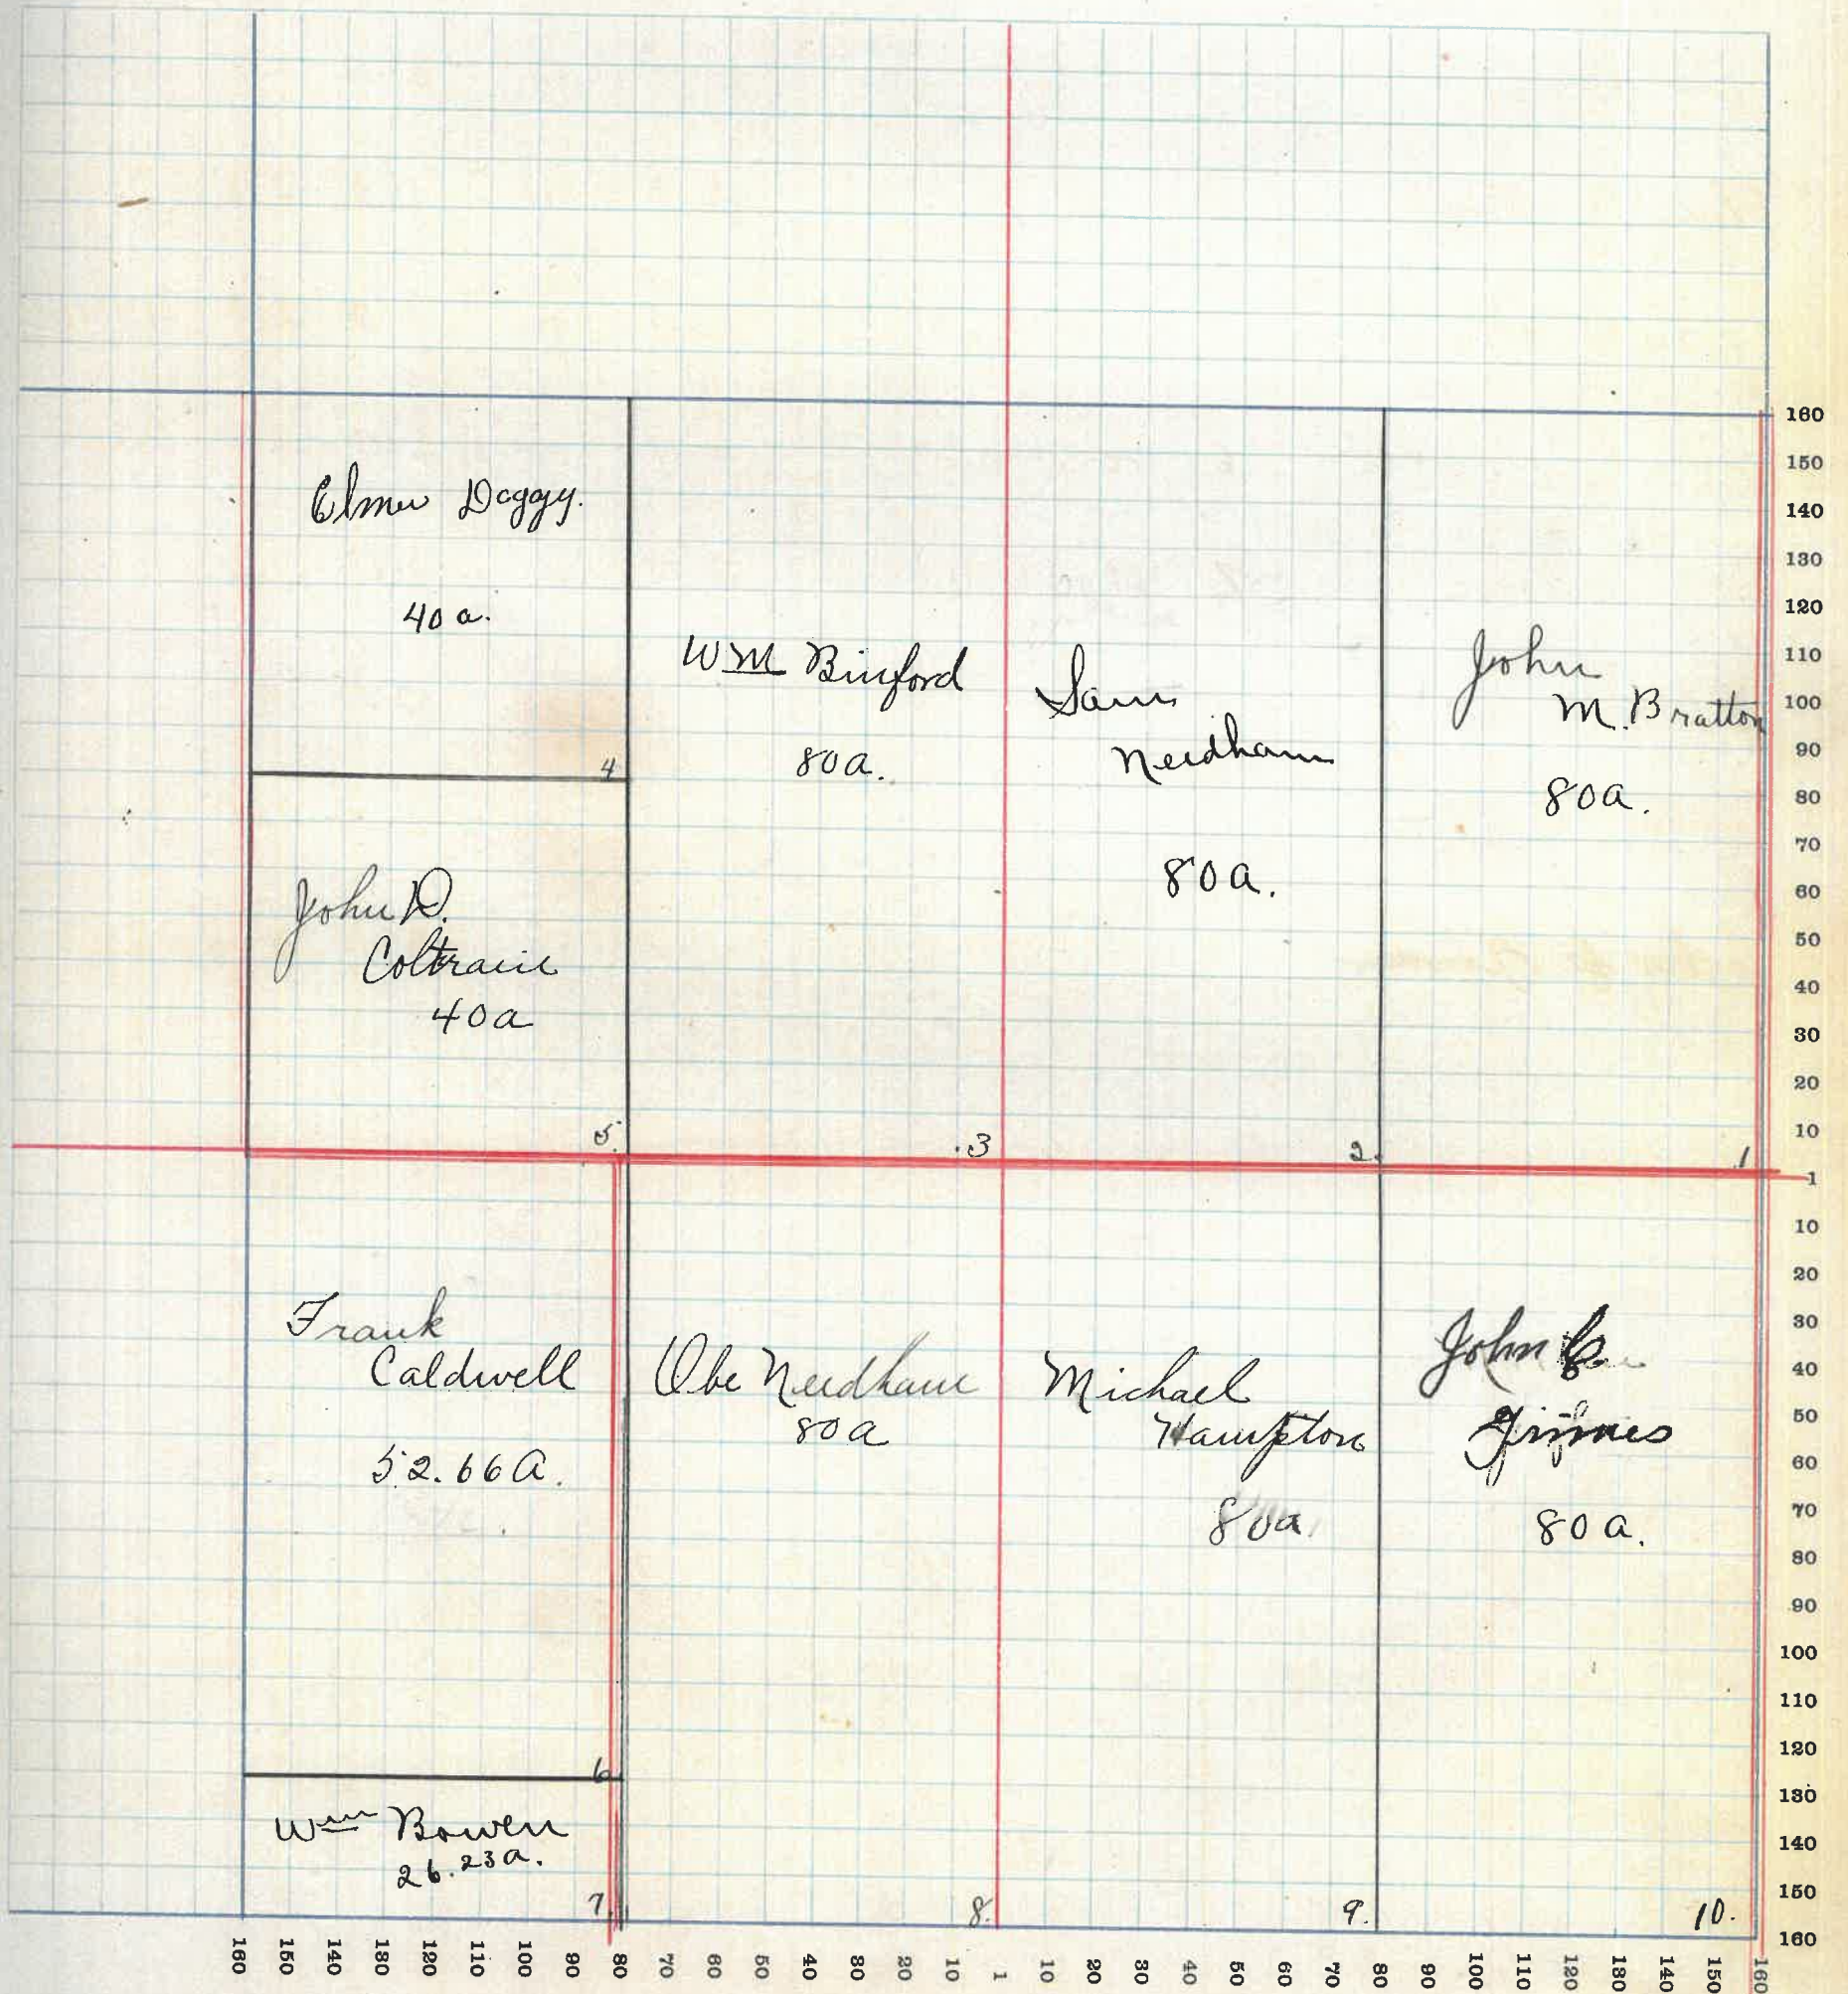 Elmer Doggy.
40 a.
4
John D.
Coltrain
40a
5.
Wm Binford
80a.
3
Sam
Needham
80a.
2.
John
M. Bratton
80a.
1
Frank
Caldwell
52.66 A.
6
Wm Bowen
26.23a.
7.
Obe Needham
80a
8.
Michael
Hampton
80a.
9.
John
Grimes
80 a.
10.
160
150
140
130
120
110
100
90
80
70
60
50
40
30
20
10
1
10
20
30
40
50
60
70
80
90
100
110
120
130
140
150
160
160 150 140 130 120 110 100 90 80 70 60 50 40 30 20 10 1 10 20 30 40 50 60 70 80 90 100 110 120 130 140 150 160